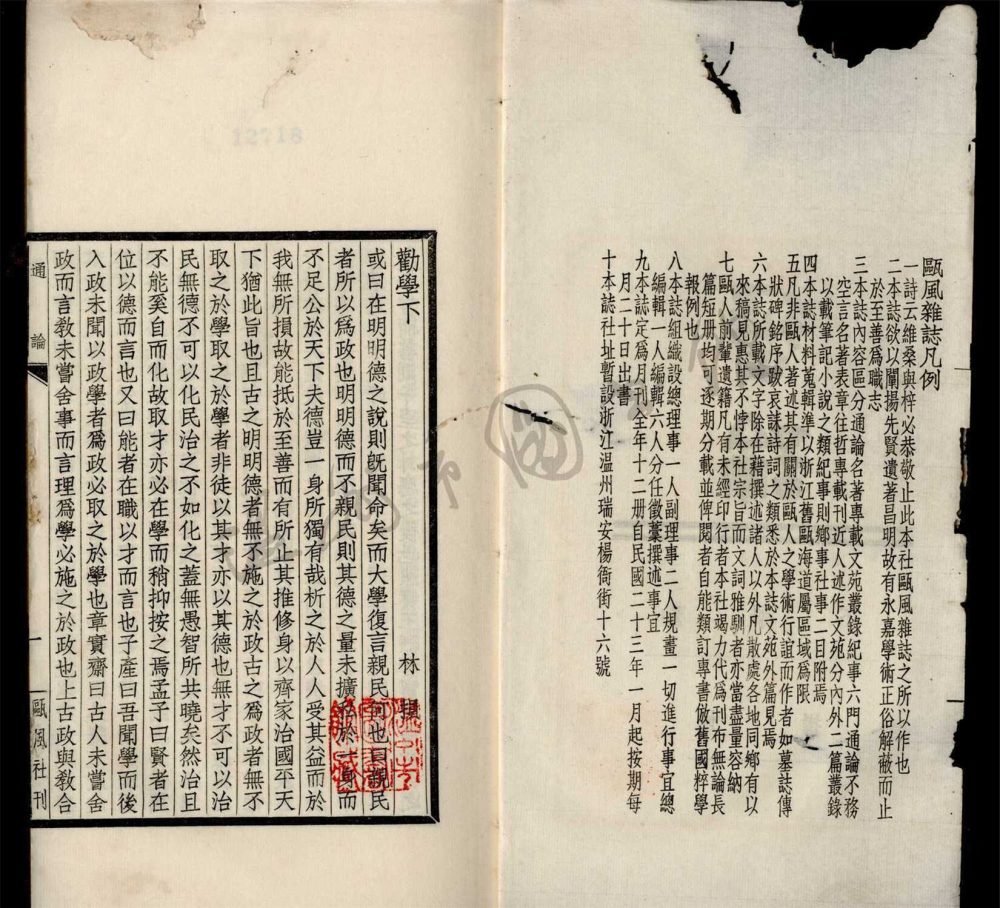 甌風雜誌凡例
一詩云維桑與梓必恭敬止此本社甌風雜誌之所以作也
二本誌欲以闡揚先賢遺著昌明故有永嘉學術正俗解蔽而止
於至善爲職志
三本誌內容區分通論名著專載文苑叢錄紀事六門通論不務
空言名著表章往哲專載刊近人述作文苑分內外二篇叢錄
以載筆記小說之類紀事則鄉事社事二目附焉
四本誌材料蒐輯準以浙江舊甌海道屬區域爲限
五凡非甌人著述其有關於甌人之學術行誼而作者如墓誌傳
狀碑銘序跋哀誄詩詞之類悉於本誌文苑外篇見焉
六本誌所載文字除在藉撰述諸人以外凡散處各地同鄉有以
來稿見惠其不悖本社宗旨而文詞雅馴者亦當盡量容納
七甌人前輩遺籍凡有未經印行者本社竭力代爲刊布無論長
篇短册均可逐期分載並俾閱者自能類訂專書倣舊國粹學
報例也
八本誌組織設總理事一人副理事二人規畫一切進行事宜總
編輯一人編輯六人分任徵藁撰述事宜
九本誌定爲月刊全年十二册自民國二十三年一月起按期每
月二十日出書
十本誌社址暫設浙江温州瑞安楊衙街十六號
12718
勸學下
林
或曰在明明德之說則旣聞命矣而大學復言親民何也曰親民
者所以爲政也明明德而不親民則其德之量未擴於一身而
不足公於天下夫德豈一身所獨有哉析之於人人受其益而於
我無所損故能抵於至善而有所止其推修身以齊家治國平天
下猶此旨也且古之明明德者無不施之於政古之爲政者無不
取之於學取之於學者非徒以其才亦以其德也無才不可以治
民無德不可以化民治之不如化之蓋無愚智所共曉矣然治且
不能奚自而化故取才亦必在學而稍抑按之焉孟子曰賢者在
位以德而言也又曰能者在職以才而言也子產曰吾聞學而後
入政未聞以政學者爲政必取之於學也章實齋曰古人未嘗舍
政而言教未嘗舍事而言理爲學必施之於政也上古政與教合
通論
一
甌風社刊